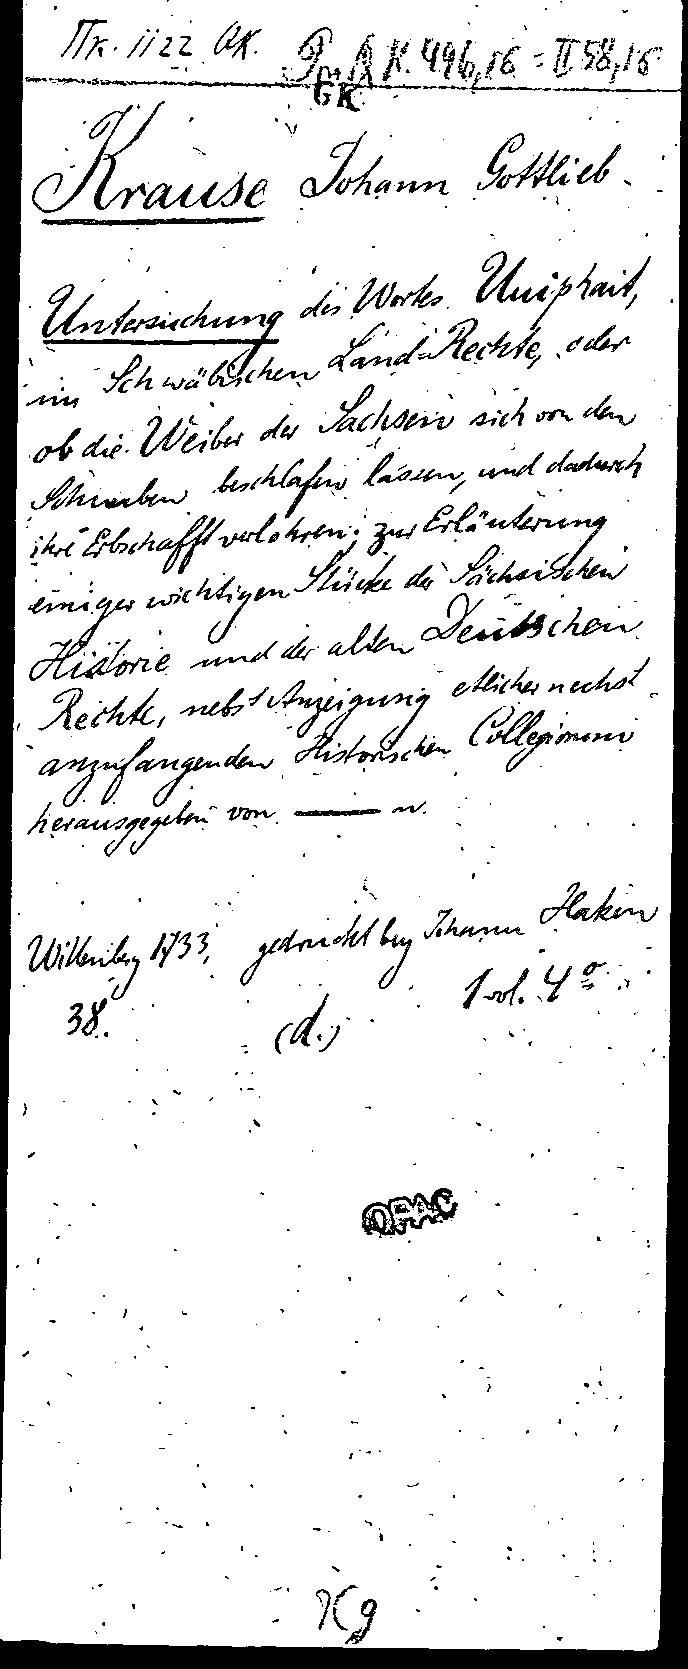 Пк. 1122 ак. К. 496,16 = II 58,16
GK
Krause Johann Gottlieb
Untersuchung des Wortes Uniphait,
im Schwäbischen Land-Rechte, oder
ob die Weiber der Sachsen sich von den
Schwaben beschlafen lassen, und dadurch
ihre Erbschafft verlohren; zur Erläuterung
einiger wichtigen Stücke der Sächsischen
Historie und der alten Deutschen
Rechte, nebst Anzeigung etlicher nechst
anzufangenden Historischen Collegiorum
herausgegeben von ——
Wittenberg 1733, gedruckt bey Johann Haken
38. (d.) 1 vol. 4º
OPAC